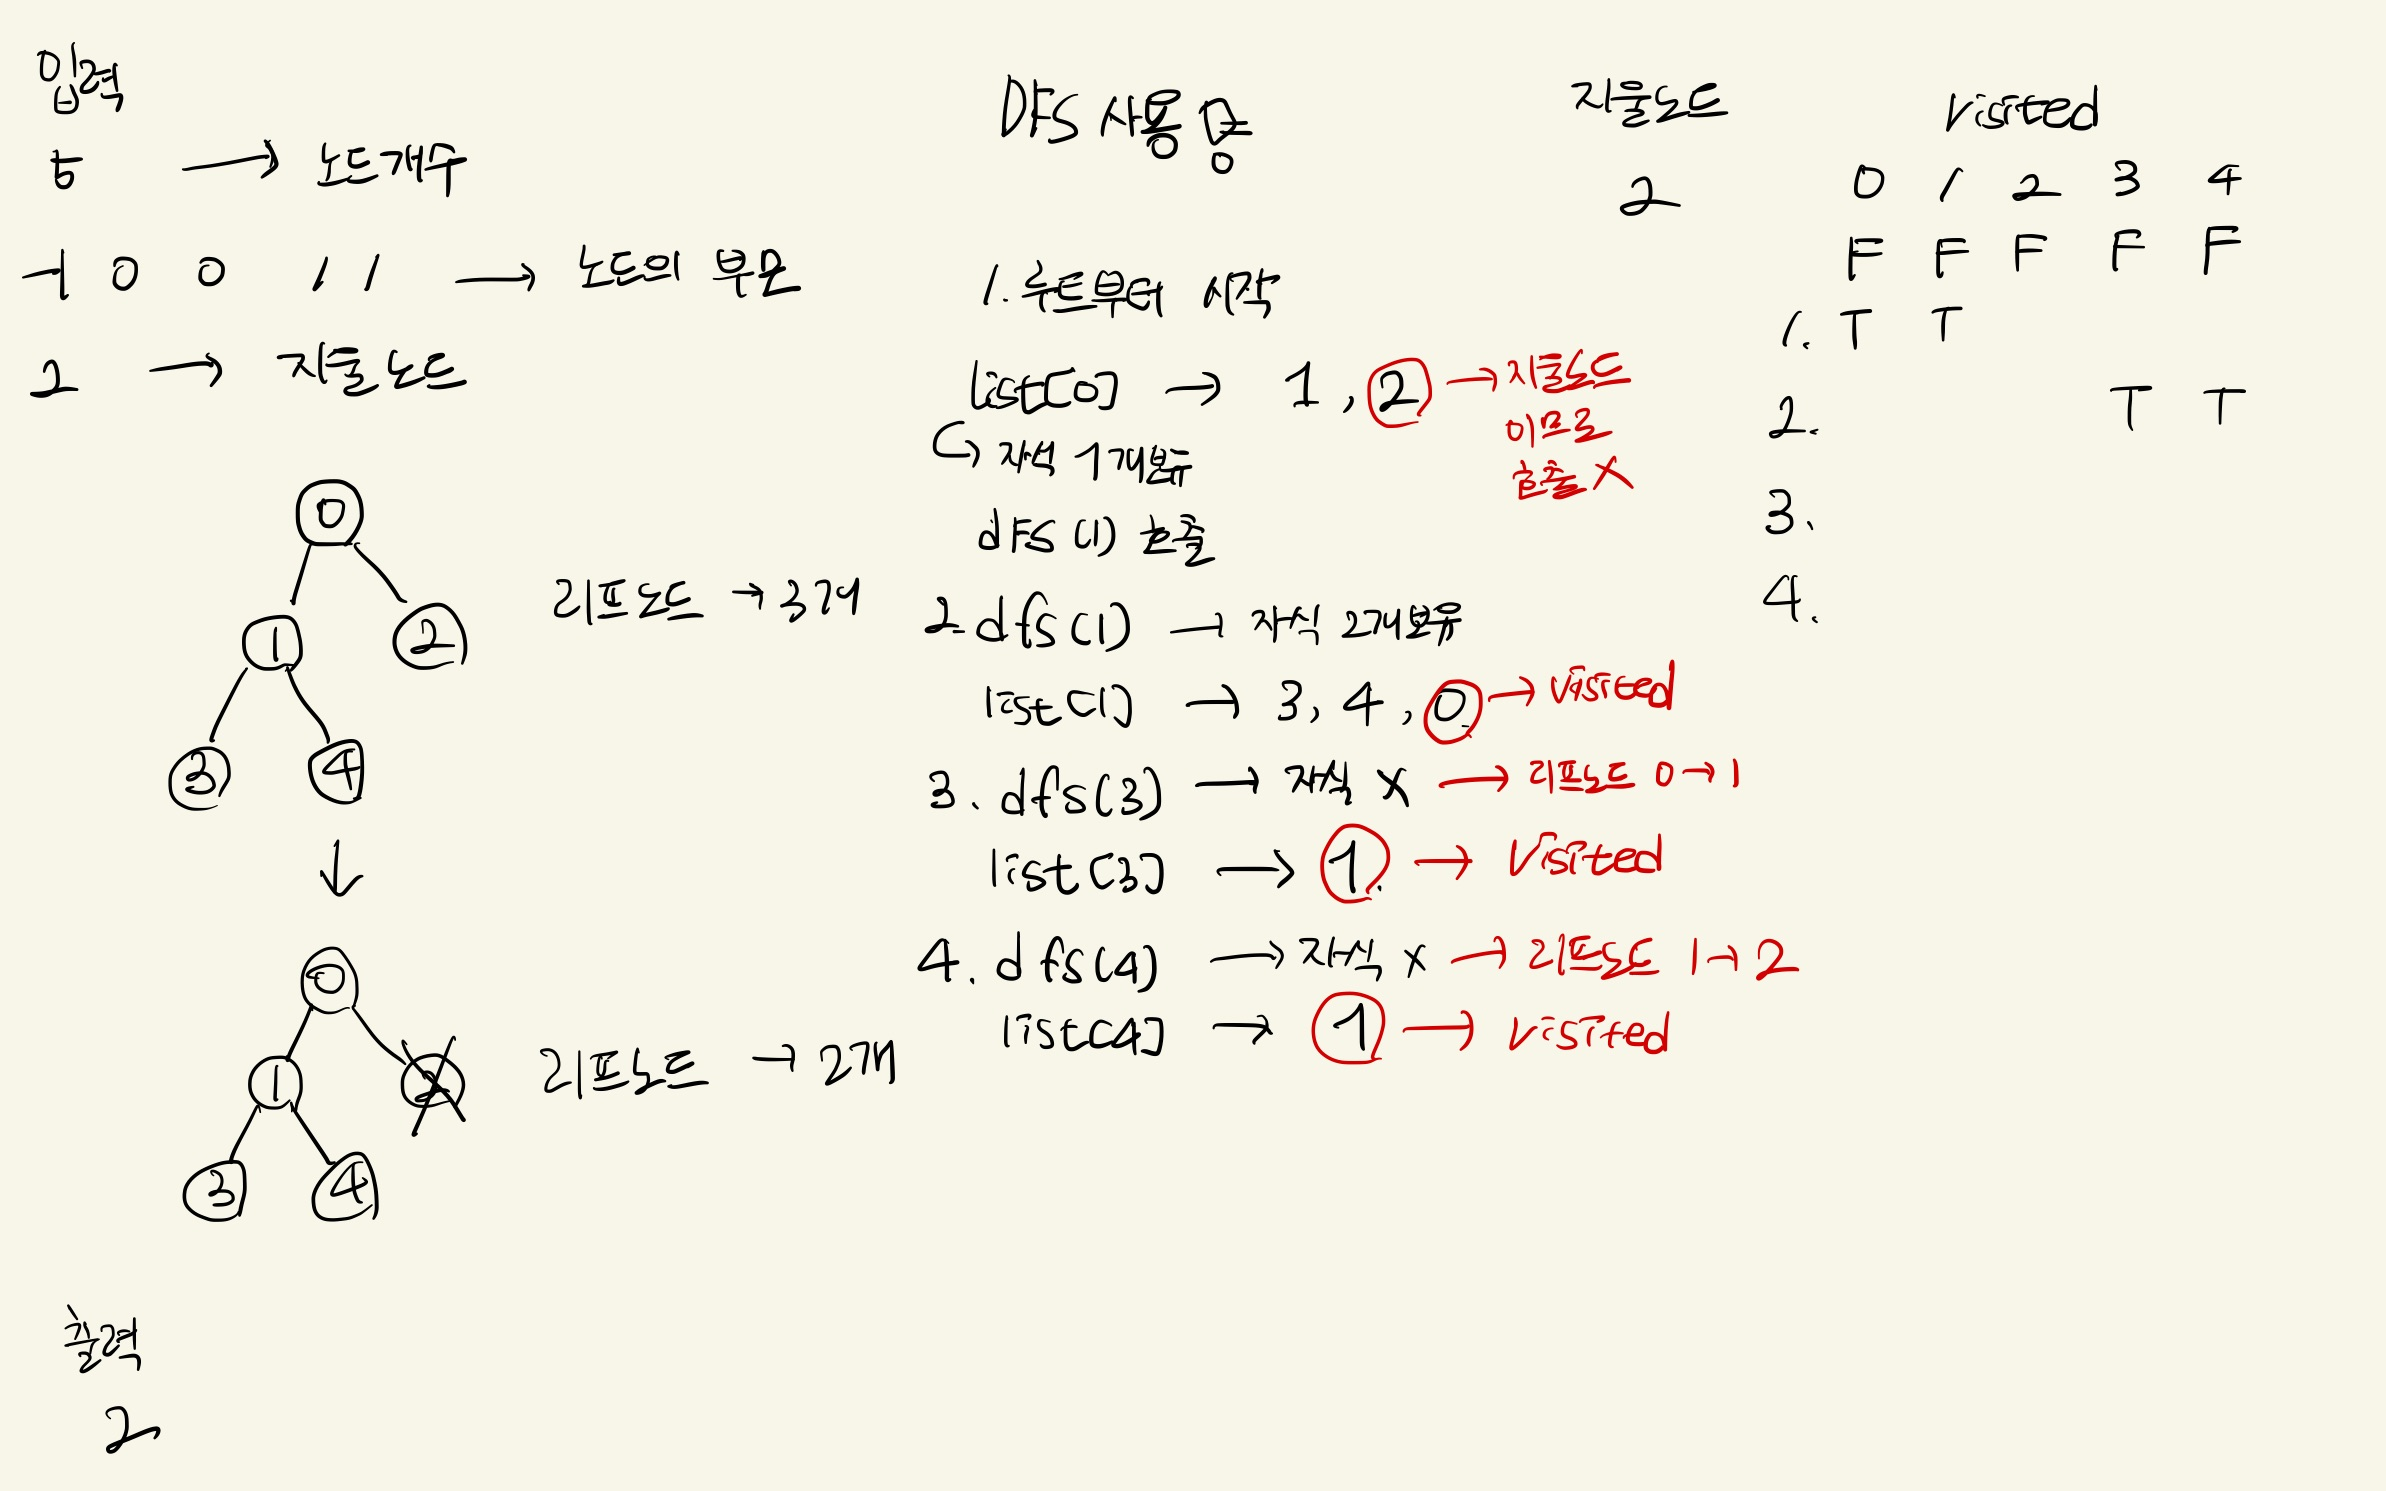 입력
5 → 노드개수
-1 0 0 1 1 → 노드의 부모
2 → 지울노드
0
1 2
3 4
리프노드 → 3개
↓
0
1 2
3 4
리프노드 → 2개
출력
2
DFS 사용
1. 루트부터 시작
list[0] → 1, 2 → 지울노드
이므로
호출 X
↳ 자식 1개보유
dfs(1) 호출
2. dfs(1) → 자식 2개보유
list[1] → 3, 4, 0 → visited
3. dfs(3) → 자식 X → 리프노드 0→1
list[3] → 1. → visited
4. dfs(4) → 자식 X → 리프노드 1→2
list[4] → 1 → visited
지울노드
2
visited
0 1 2 3 4
F F F F F
1. T T
2. T T
3.
4.